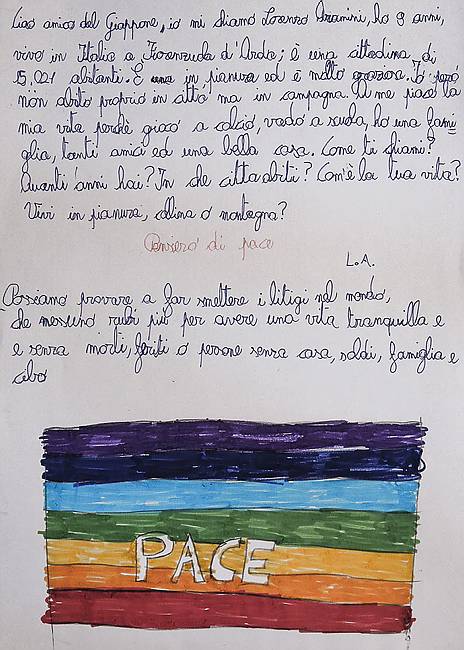 Ciao amico del Giappone, io mi chiamo Lorenzo Aramini, ho 9 anni,
vivo in Italia a Fiorenzuola d'Arda; è una cittadina di
15.021 abitanti. È in pianura ed è molto graziosa. Io però
non abito proprio in città ma in campagna. A me piace la
mia vita perché gioco a calcio, vado a scuola, ho una fami
glia, tanti amici ed una bella casa. Come ti chiami?
Quanti anni hai? In che città abiti? Com'è la tua vita?
Vivi in pianura, collina o montagna?
Pensiero di pace
L.A.
Possiamo provare a far smettere i litigi nel mondo,
che nessuno rubi più per avere una vita tranquilla e
e senza morti, feriti o persone senza casa, soldi, famiglia e
cibo
PACE